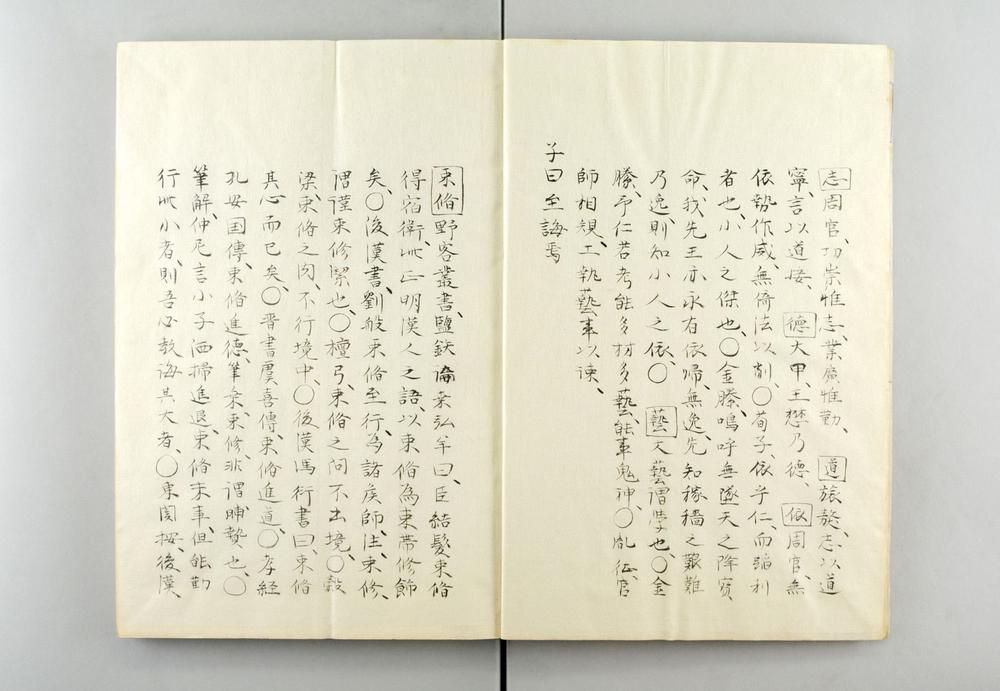 志周官、功崇惟志、業廣惟勤、道旅獒、志以道
寧、言以道接、德大甲、王懋乃德、依周官、無
依勢作威、無倚法以削、〇荀子、依乎仁、而蹈利
者也、小人之傑也、〇金縢、嗚呼無墜天之降寳
命、我先王亦永有依歸、無逸、先知稼穡之艱難
乃逸、則知小人之依、〇藝文藝謂學也、〇金
縢、予仁若考能多材多藝、能事鬼神、〇胤征、官
師相規、工執藝事以諫、
子曰至誨焉
束脩野客叢書、鹽鉄論桒弘羊曰、臣結髮束脩
得宿衛、此正明漢人之語、以束脩為束帯修飾
矣、〇後漢書、劉般束脩至行、為諸侯師、注、束修、
謂謹束修潔也、〇檀弓、束脩之問不出境、〇穀
梁、束脩之肉、不行境中、〇後漢馮衍書曰、束脩
其心而已矣、〇晋書虞喜傳、束脩進道、〇孝経
孔安国傳、束脩進德、筆乗、束修、非謂脯贄也、〇
筆解、仲尼言小子洒掃進退、束脩末事、但能勤
行此小者、則吾必教誨其大者、〇東閣按、後漢、